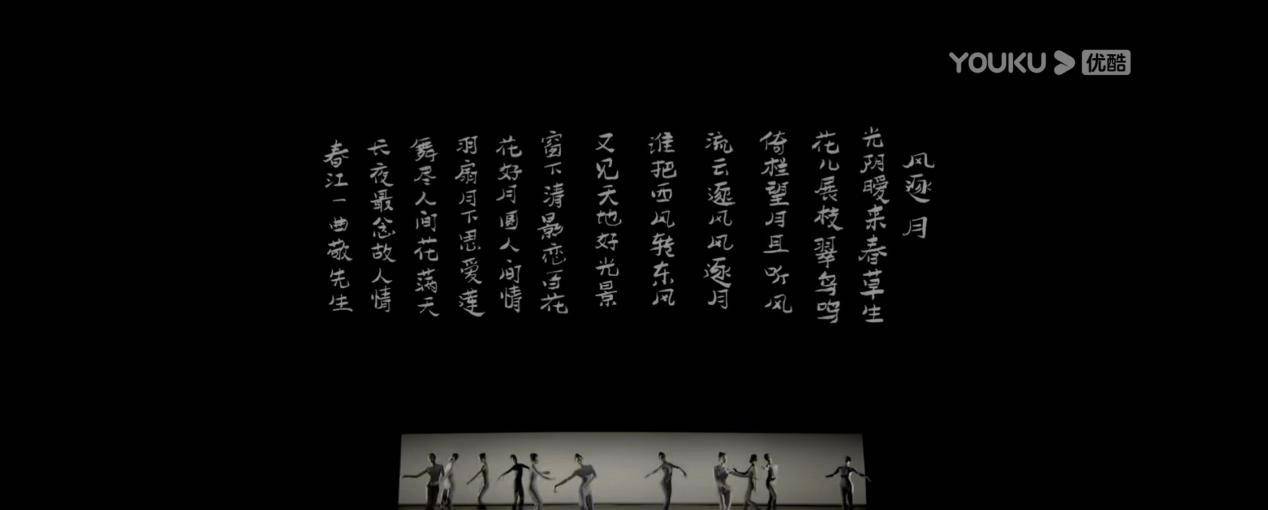 YOUKU 优酷
风逐月
光阴暧来春草生
花儿展枝翠鸟鸣
倚栏望月耳听风
流云逐风风逐月
谁把西风转东风
又见天地好光景
窗下清影恋百花
花好月圆人间情
羽扇月下思爱莲
舞尽人间花满天
长夜最念故人情
春江一曲敬先生